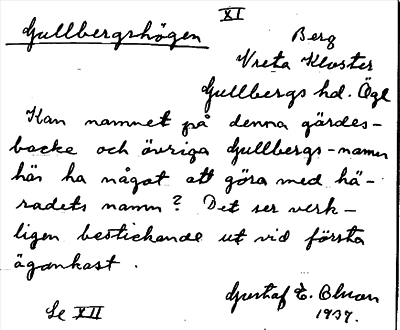 XI
Gullbergshögen
Berg
Vreta Kloster
Gullbergs hd. Ögl
Kan namnet på denna gärdes-
backe och övriga Gullbergs-namn
här ha något att göra med hä-
radets namn? Det ser verk-
ligen bestickande ut vid första
ögonkast.
Gustaf E. Olsson
1937.
Se XII